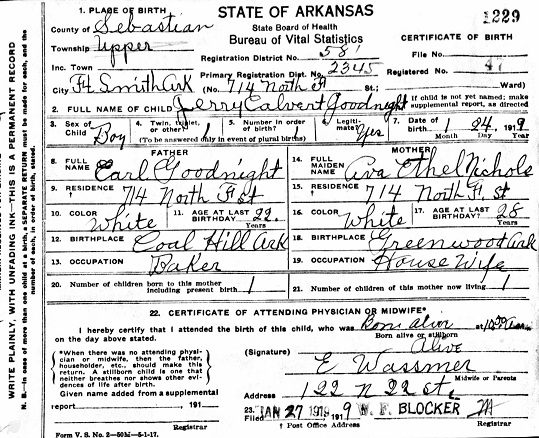 STATE OF ARKANSAS
State Board of Health
Bureau of Vital Statistics
1229
CERTIFICATE OF BIRTH
1. PLACE OF BIRTH
County of Sebastian
Township Upper
Inc. Town
City Ft. Smith Ark
Registration District No. 581
Primary Registration Dist. No. 2345
(No. 714 North F St.; Ward)
File No.
Registered No.
2. FULL NAME OF CHILD Jerry Calvert Goodnight
If child is not yet named; make supplemental report, as directed
3. Sex of Child Boy
4. Twin, triplet, or other? 1
5. Number in order of birth? 1
(To be answered only in event of plural births)
6. Legitimate? Yes
7. Date of birth 1 24, 1919
Month Day Year
FATHER
8. FULL NAME Earl Goodnight
9. RESIDENCE 714 North F st
10. COLOR White
11. AGE AT LAST BIRTHDAY? 22 Years
12. BIRTHPLACE Coal Hill Ark
13. OCCUPATION Baker
MOTHER
14. FULL MAIDEN NAME Ava Ethel Nichols
15. RESIDENCE 714 North F st
16. COLOR White
17. AGE AT LAST BIRTHDAY? 28 Years
18. BIRTHPLACE Greenwood Ark
19. OCCUPATION House Wife
20. Number of children born to this mother including present birth 1
21. Number of children of this mother now living 1
22. CERTIFICATE OF ATTENDING PHYSICIAN OR MIDWIFE*
I hereby certify that I attended the birth of this child, who was Born alive at 10
Born alive or stillborn
on the day above stated. Alive
*When there was no attending physician or midwife, then the father, householder, etc., should make this return. A stillborn child is one that neither breathes nor shows other evidences of life after birth.
Given name added from a supplemental
report , 191
Registrar
(Signature) E Wassmer
Midwife or Parents
Address 122 N 22 St,
23. Filed JAN 27 1919 191 9 W. F. BLOCKER
† Post Office Address
Registrar
Form V. S. No. 2—50M—5-1-17.
WRITE PLAINLY, WITH UNFADING INK—THIS IS A PERMANENT RECORD
N. B.—In case of more than one child at a birth, a SEPARATE RETURN must be made for each, and the number of each, in order of birth, stated.